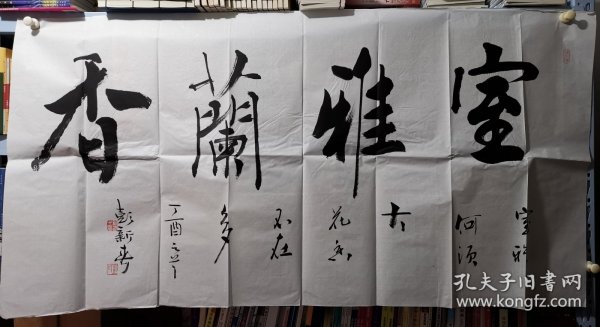 室雅蘭香
室雅
何須
大
花香
不在
多
丁酉之
彭新
孔夫子旧书网
www.kongfz.com